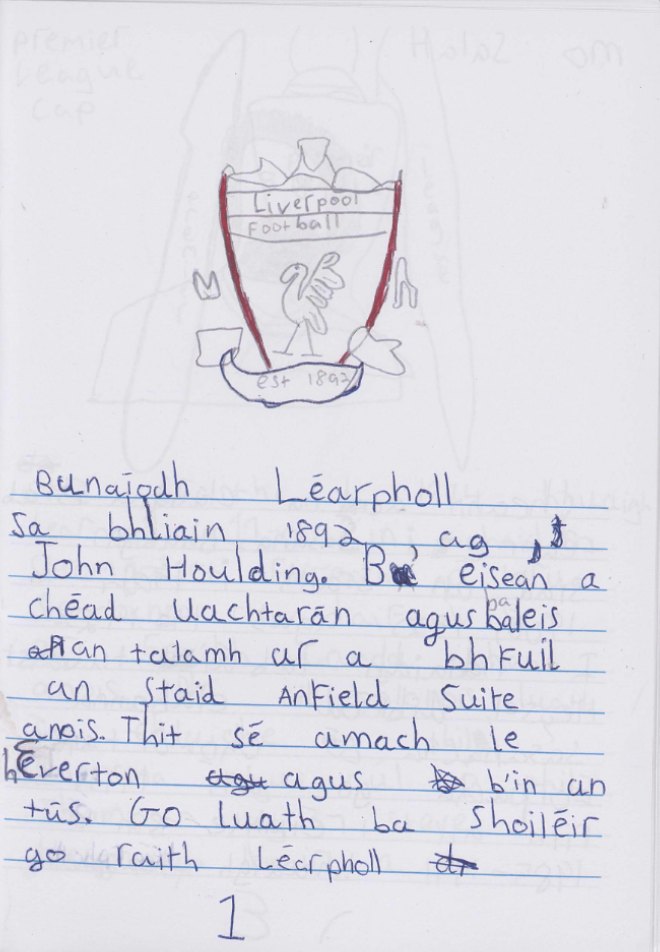 Liverpool
Football
est 1892
Bunaíodh Léarpholl
sa bhliain 1892 ag
John Houlding. Bí eisean a
chéad Uachtarán agus ba leis
an talamh ar a bhfuil
an Staid Anfield Suite
anois. Thit sé amach le
hEverton agus b'in an
tús. Go luath ba shoiléir
go raith Léarpholl
1